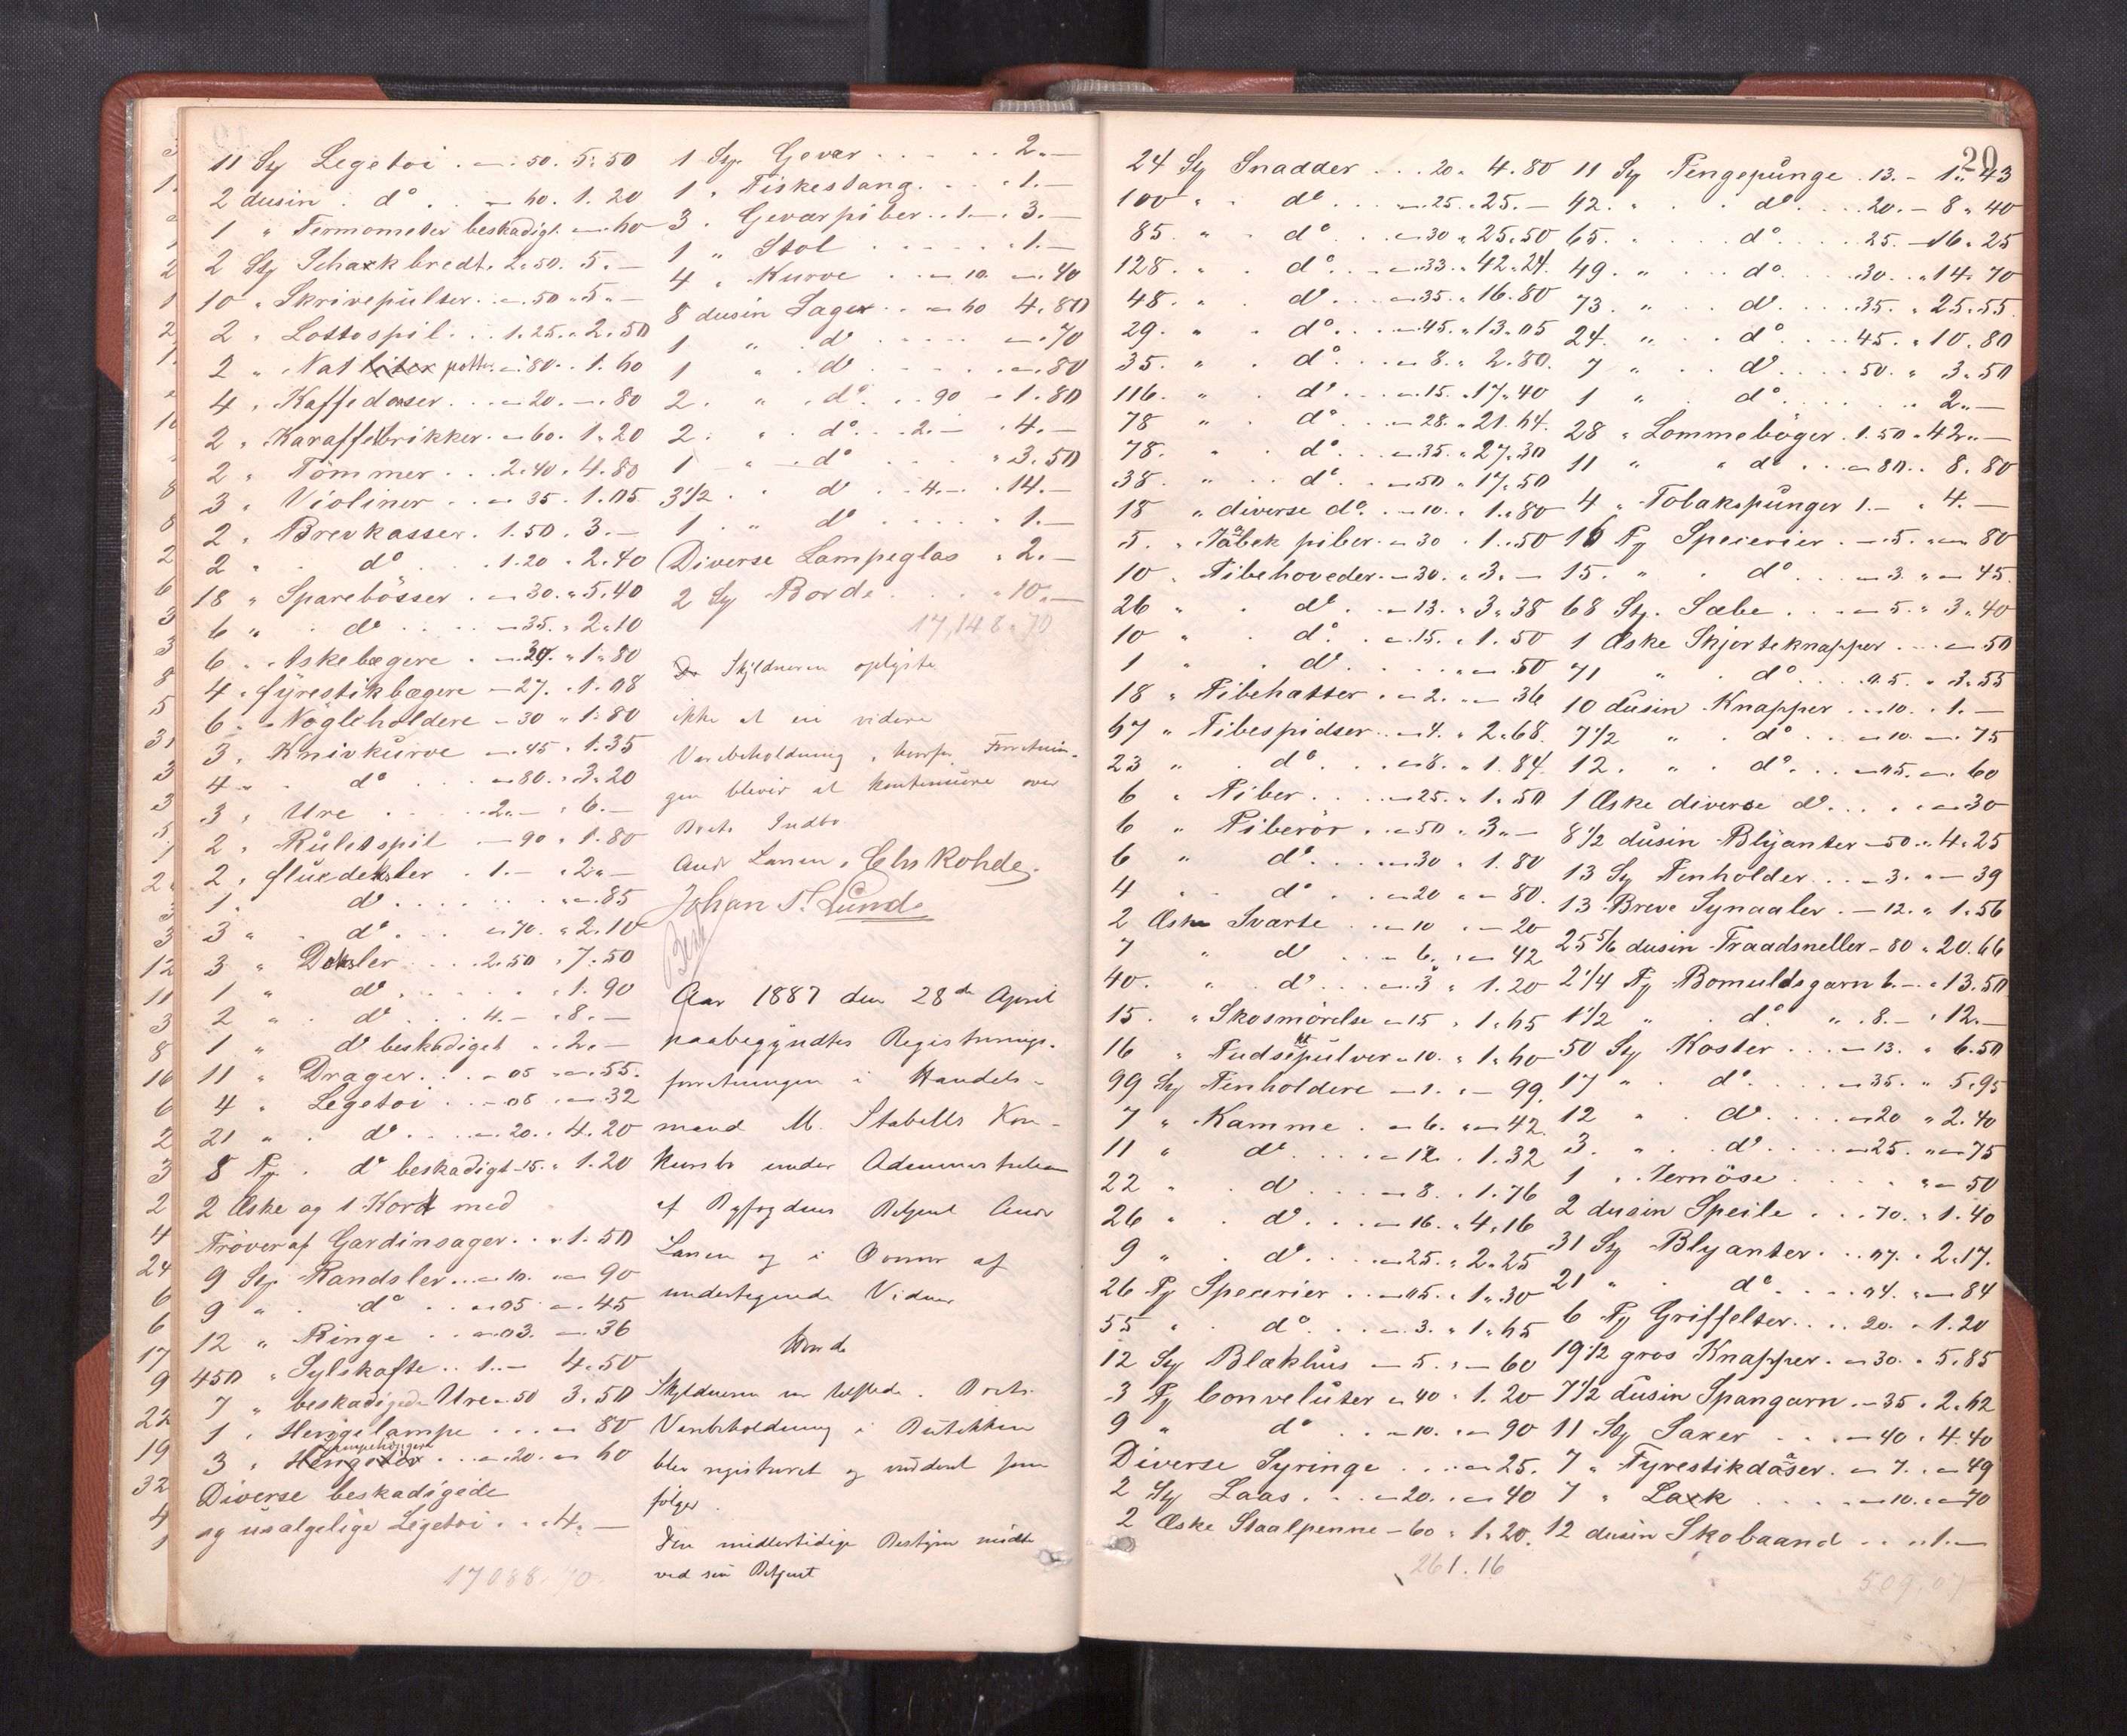 11 Sty Legetoi . — . 50 . 5 . 50
2 dusin . do . . — 60 . 1 . 20
1 " Termometer beskadigt — 60
2 Sty Schakbredt . 2.50 . 5. —
10 " Skrivepulter . — . 50 " 5 " —
2 " Lottospil . . . 1.25 . . 2 . 50
2 " Natpotte . — . 80 . . 1 . 60
4 " Kaffedaaser . . . — 20 . — . 80
2 " Karaffelbrikker . — 60 . 1 " 20
2 " Tömmer . . . 2.40 . 4 . 80
3 " Violiner . . — 35 . 1.05
2 " Brevkasser . 1.50 . 3. —
2 " . do . . 1.20 . 2.40
18 " Sparebösser . — 30 . " 5.40
6 " . do . . . — 35 . " 2.10
6 " Askebægere . — 30 . " 1 " 80
4 " fyrestikbægere — 27 . . 1.08
6 " Nögleholdere — 30 " 1.80
3 " Knivkurve — 45 . 1.35
4 " . do . . — 80 . . 3 " 20
3 " Ure . . . . 2. — . 6. —
2 " Ruletspil — 90 . 1.80
2 " fluedeksler . 1. — . 2 " —
1 . do . . . . . . " — 85
3 " . do . . . — 70 . " 2.10
3 " Deksler . . . 2.50 . 7.50
1 " do . . . . . . 1.90
2 " . do . . . 4. — . 8. —
1 " do beskadiget . . 2. —
11 " Drager . . . — 05 . — . 55.
4 " Legetoi . . . — 08 . — 32
21 " . do . . . — 20 . . 4.20
8 Py . do beskadigt — 15 . " 1.20
2 Æske og 1 Kort med
Pröver af Gardinsager . . . 1.50
9 Sty. Randsler . . — 10 . — 90
9 " . do . . — 05 . — . 45
12 " Ringe . . — 03 . — . 36
450 " Sylskafte . . 1. — 4.50
7 " beskadigede Ure — 50 3.50
1 " Hengelampe . . . — 80
3 " Lampehængere . . . — 20 . — 60
Diverse beskadigede
og usalgelige Legetoi . . . 4. —
17088.70.
1 Sty. Gevær . . . . . 2. —
1 " Fiskestang . . . . 1. —
3 . Geværpiber . . 1 — . 3. —
1 " Stol . . . . . . 1. —
4 " Kurve . . — 10 . — . 40
8 dusin Sager . . — 60 4.80
1 " . do . . . . . — . 70
1 " . do . . . . . — . 80
2 . " . do . . 90 . 1.80
2 . " . do . . . 2. — . 4. —
1 — " — do . . . . " 3.50
3 1/2 . " do . . 4. — . 14. —
1 . " do . . . . . . 1. —
Diverse Lampeglas . 2. —
2 Sty Borde . . . . " 10. —
17,148 " 70
Skyldneren oplyste
ikke at eie videre
Varebeholdning, hvorfor Forretnin-
gen blever at kontinuere over
Boets Indbo
Andr Larsen . Chr Rohde.
Johan S. Lunde
Aar 1887 den 28de April
paabegyndtes Registrerings-
forretningen i Handels-
mand M. Stabells Kon-
kursbo under Administration
af Byfogdens Betjent Andr
Larsen og i Overvær af
undertegnede Vidner
Skyldneren var tilstede. Boets
Varebeholdning i Butikken
blev registreret og vurderet som
følger.
Den midlertidige Bestyrer mødte
ved sin Betjent
20
24 Sty Snadder . . . 20 . 4.80
100 " . do . . . — 25 . . 25. —
85 . " . do . . . — 30 . 25.50
128 . " . do . . . — 33 . " 42.24.
48 . " . do . . . — 35 . " 16.80
29 . " . do . . . — 45 . " 13.05
35 . " . do . . . — 8 . " 2.80.
116 . " . do . . . — 15 . . 17.40
78 " . do . . . — 28 . " 21.84.
78 . " . do . . . — 35 . " 27.30
38 . " . do . . . — 50 . 17.50
18 " diverse do . — 10 . . 1 " 80
5 . " Tabak piber — 30 . 1.50
10 . Pibehoveder . — 30 . " 3. —
26 " . do . . — 13 . " 3 " 38
10 " . do . . — 15 . . 1.50
1 " . do . . . . . — . 50
18 " Pibehatter . — 2 . — 36
67 " Pibespidser . . — 4 . " 2.68.
23 " . do . . . — 8 . " 1.84.
6 " Piber . . . — 25 . " 1.50
6 " Piberör . . — 50 " 3 " —
6 " do . . . — 30 . 1.80
4 . . do . . — 20 " — 80.
2 Æske Sværte . . — 10 . — 20
7 " do . . — 6 . . — 42
40 . " . do . . . — 3 " 1.20
15 . " Skosmörelse — 15 . 1.65
16 " Pudsepulver — 10 . " 1 " 60
99 Sty Penholdere — 1 . . — 99.
7 " Kamme . — 6 . " — 42.
11 " do . . . . — 12 . 1.32
22 " . do . . . — 8 . . 1.76
26 " . do . . . — 16 . " 4.16
9 " . do . . . — 25 . " 2.25
26 Py Specerier . . — 05 . . 1 " 30
55 " . do . . . — 3 . " 1.65
12 Sty Blækhus — 5 . . — 60
3 Py Convoluter — 40 . 1.20
9 " do . . . — 10 . . — 90
Diverse Syringe . . . — 25.
2 Sty Laas . . . — 20 . . — 40
2 Æske Staalpenne — 60 . 1.20.
261.16
11 Sty Pengepunge . 13 . — 1.43
42 . " . . do . . . . 20 . — 8 " 40
65 . . . do . . . . 25 . — 16 " 25
49 . " . . do . . . . 30 . . " 14.70
73 . " . do . . . . 35 . " 25.55.
24 . " . . do . . . . 45 . " 10.80
7 " . . do . . . . 50 . " 3.50
1 " . do . . . . . . 2 " —
28 " Lommebøger . 1.50 " 42 " —
11 " " do . . . — 80 . . 8.80
4 " Tobakspunger 1. — . 4. —
16 Py Specerier . — 5 . " — 80
15 . " . do . . . — 3 . " — 45.
68 Sty. Sæbe . . . — 5 . " 3.40
1 Æske Skjorteknapper . . . — 50
71 " . do . . . 05 . " 3.55
10 dusin Knapper . . — 10 . . 1. —
7 1/2 " . do . . . — 10 . — . 75
12 . " . do . . . — 05 . — . 60
1 Æske diverse do . . . . — 30
8 1/2 dusin Blyanter — 50 . " 4.25
13 Sty Penholder . . . — 3 . " — 39
13 Breve Synaaler . — 12 . " 1.56
25 5/6 dusin Traadsneller — 80 " 20.66
2 1/4 Py Bomuldsgarn 6. — . 13.50
1 1/2 " . do " . 8. — . 12. —
50 Sty Koster . . . — 13 . " 6.50
17 " . do . . . . — 35 . " 5.95
12 " . do . . . . — 20 " 2.40
3 . " . do . . . . — 25 . " — 75
1 . Jernöse . . . . . " — 50
2 dusin Speile . . . 70 . . 1.40
31 Sty Blyanter . . . 07 . . 2.17.
21 " . do . . . . 04 . " — 84
6 Py Griffelter . . . . 20 . . 1.20
19 1/2 gros Knapper . — 30 . " 5.85
7 1/2 dusin Spangarn . — 35 . 2.62
11 Sty Saxer . . . — 40 . 4.40
7 " Fyrestikdaaser . — 7 . . — 49
7 " Lak . . . . . — 10 . . — 70
12 dusin Skobaand . . . . 1. —
509.07